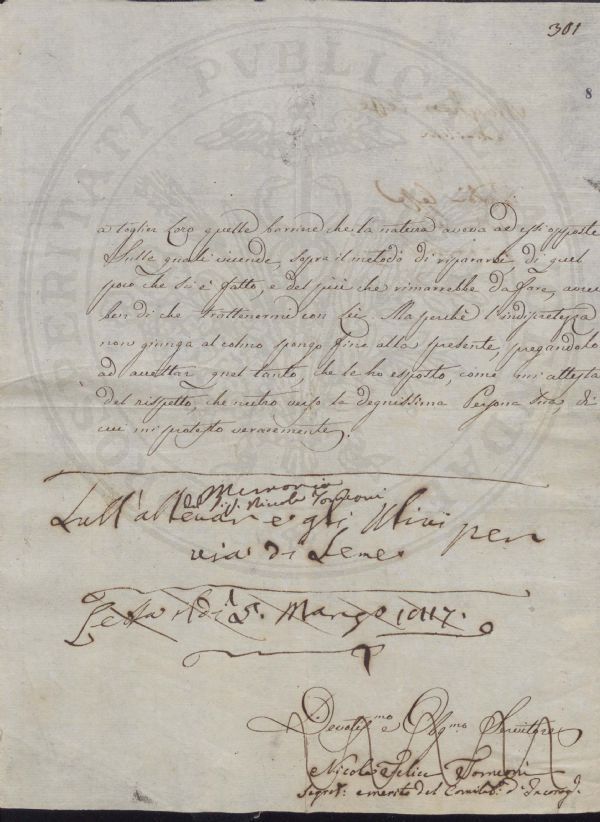 301
8
a toglier Loro quelle barriere che la natura aveva ad essi opposte
Sulle quali vicende, sopra il metodo di riparare, di quel
poco che si è fatto, e del più che rimarrebbe da fare, avrei
ben di che trattenermi con Lei. Ma perchè l'indiscretezza
non giunga al colmo pongo fine alla presente, pregandola
ad accettar quel tanto, che le ho esposto, come mi attesta
del rispetto, che nutro verso la degnissima Persona Sua, di
cui mi protesto veracemente.
Memoria
del Sig. Nicola Tomeoni
Sull'allevare gli Ulivi per
via di Seme
Letta Adi 5. Marzo 1817.
Devotis.mo e Obg.mo Servitore
Nicola Felice Tomeoni
Segret. emerito del Comitato d'Incoragg.